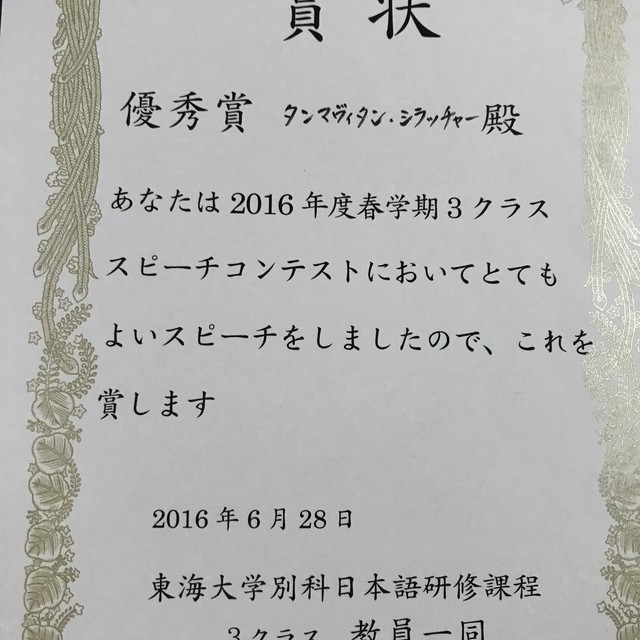 賞状
優秀賞 タンマヴィタン・シラッチャー殿
あなたは2016年度春学期3クラス
スピーチコンテストにおいてとても
よいスピーチをしましたので、これを
賞します
2016年6月28日
東海大学別科日本語研修課程
3クラス 教員一同